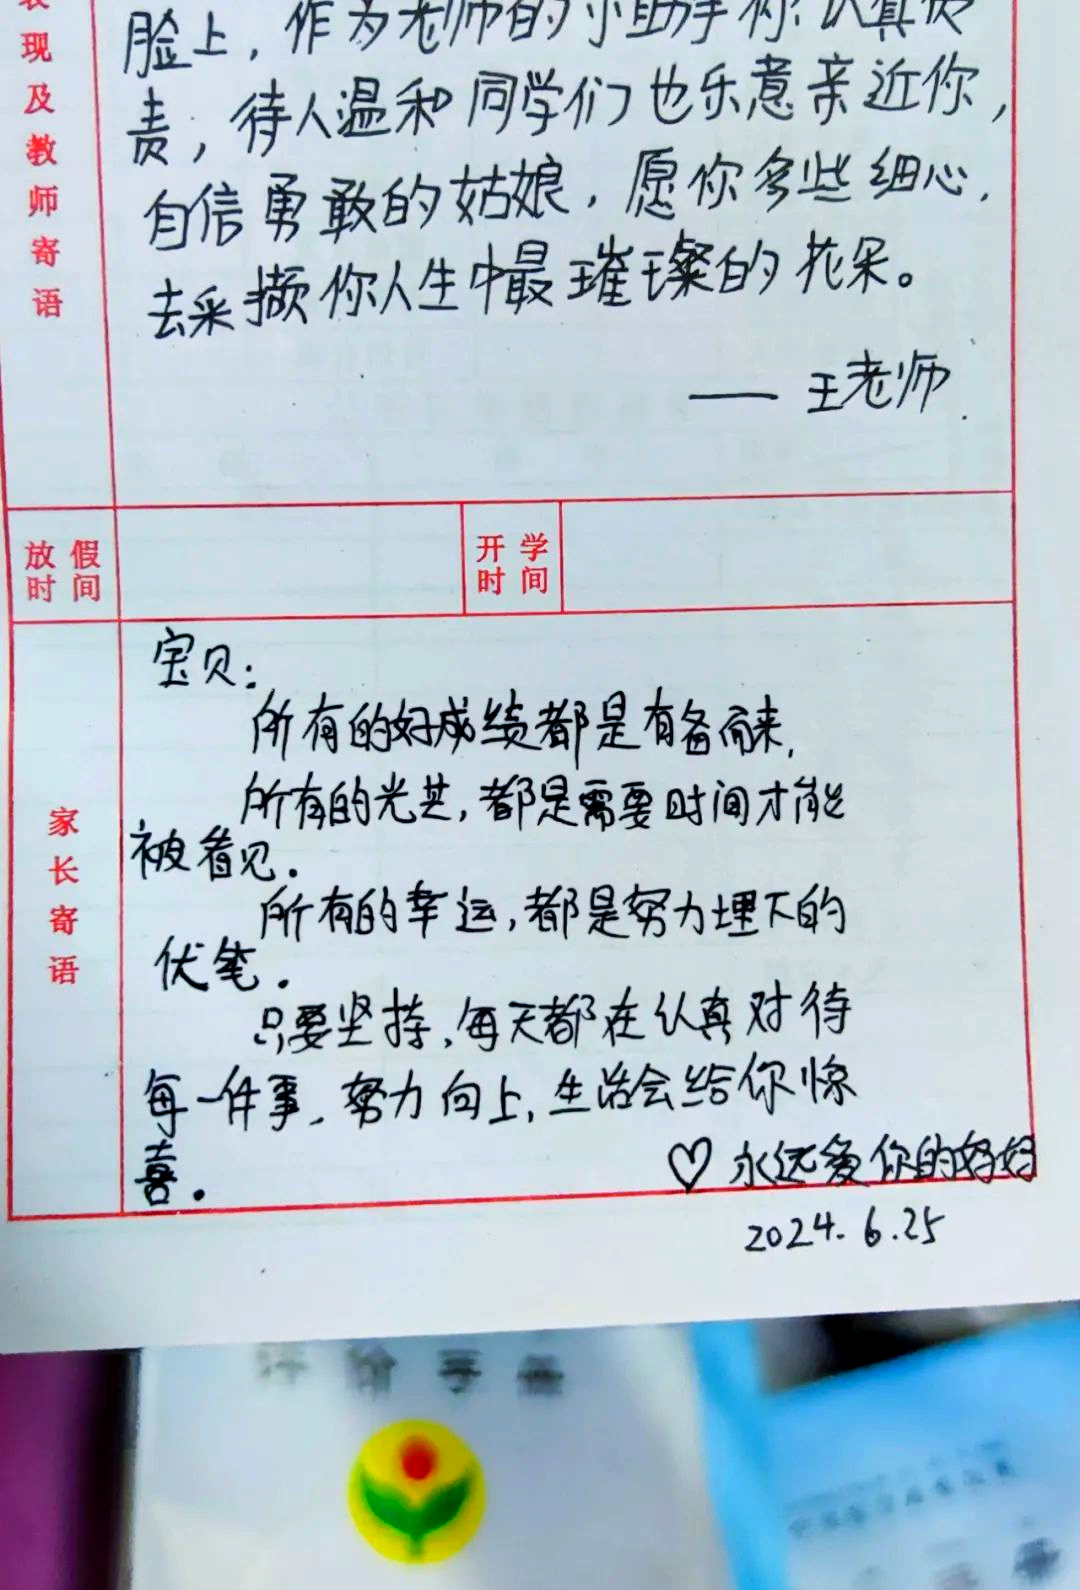 现及教师寄语
脸上，作为老师的小助手你认真负
责，待人温和同学们也乐意亲近你，
自信勇敢的姑娘，愿你多些细心，
去采撷你人生中最璀璨的花朵。
—— 王老师.
放假时间
开学时间
家长寄语
宝贝：
所有的好成绩都是有备而来，
所有的光芒，都是需要时间才能
被看见．
所有的幸运，都是努力埋下的
伏笔．
只要坚持，每天都在认真对待
每一件事、努力向上，生活会给你惊
喜．
♡永远爱你的妈妈
2024.6.25
评价手册